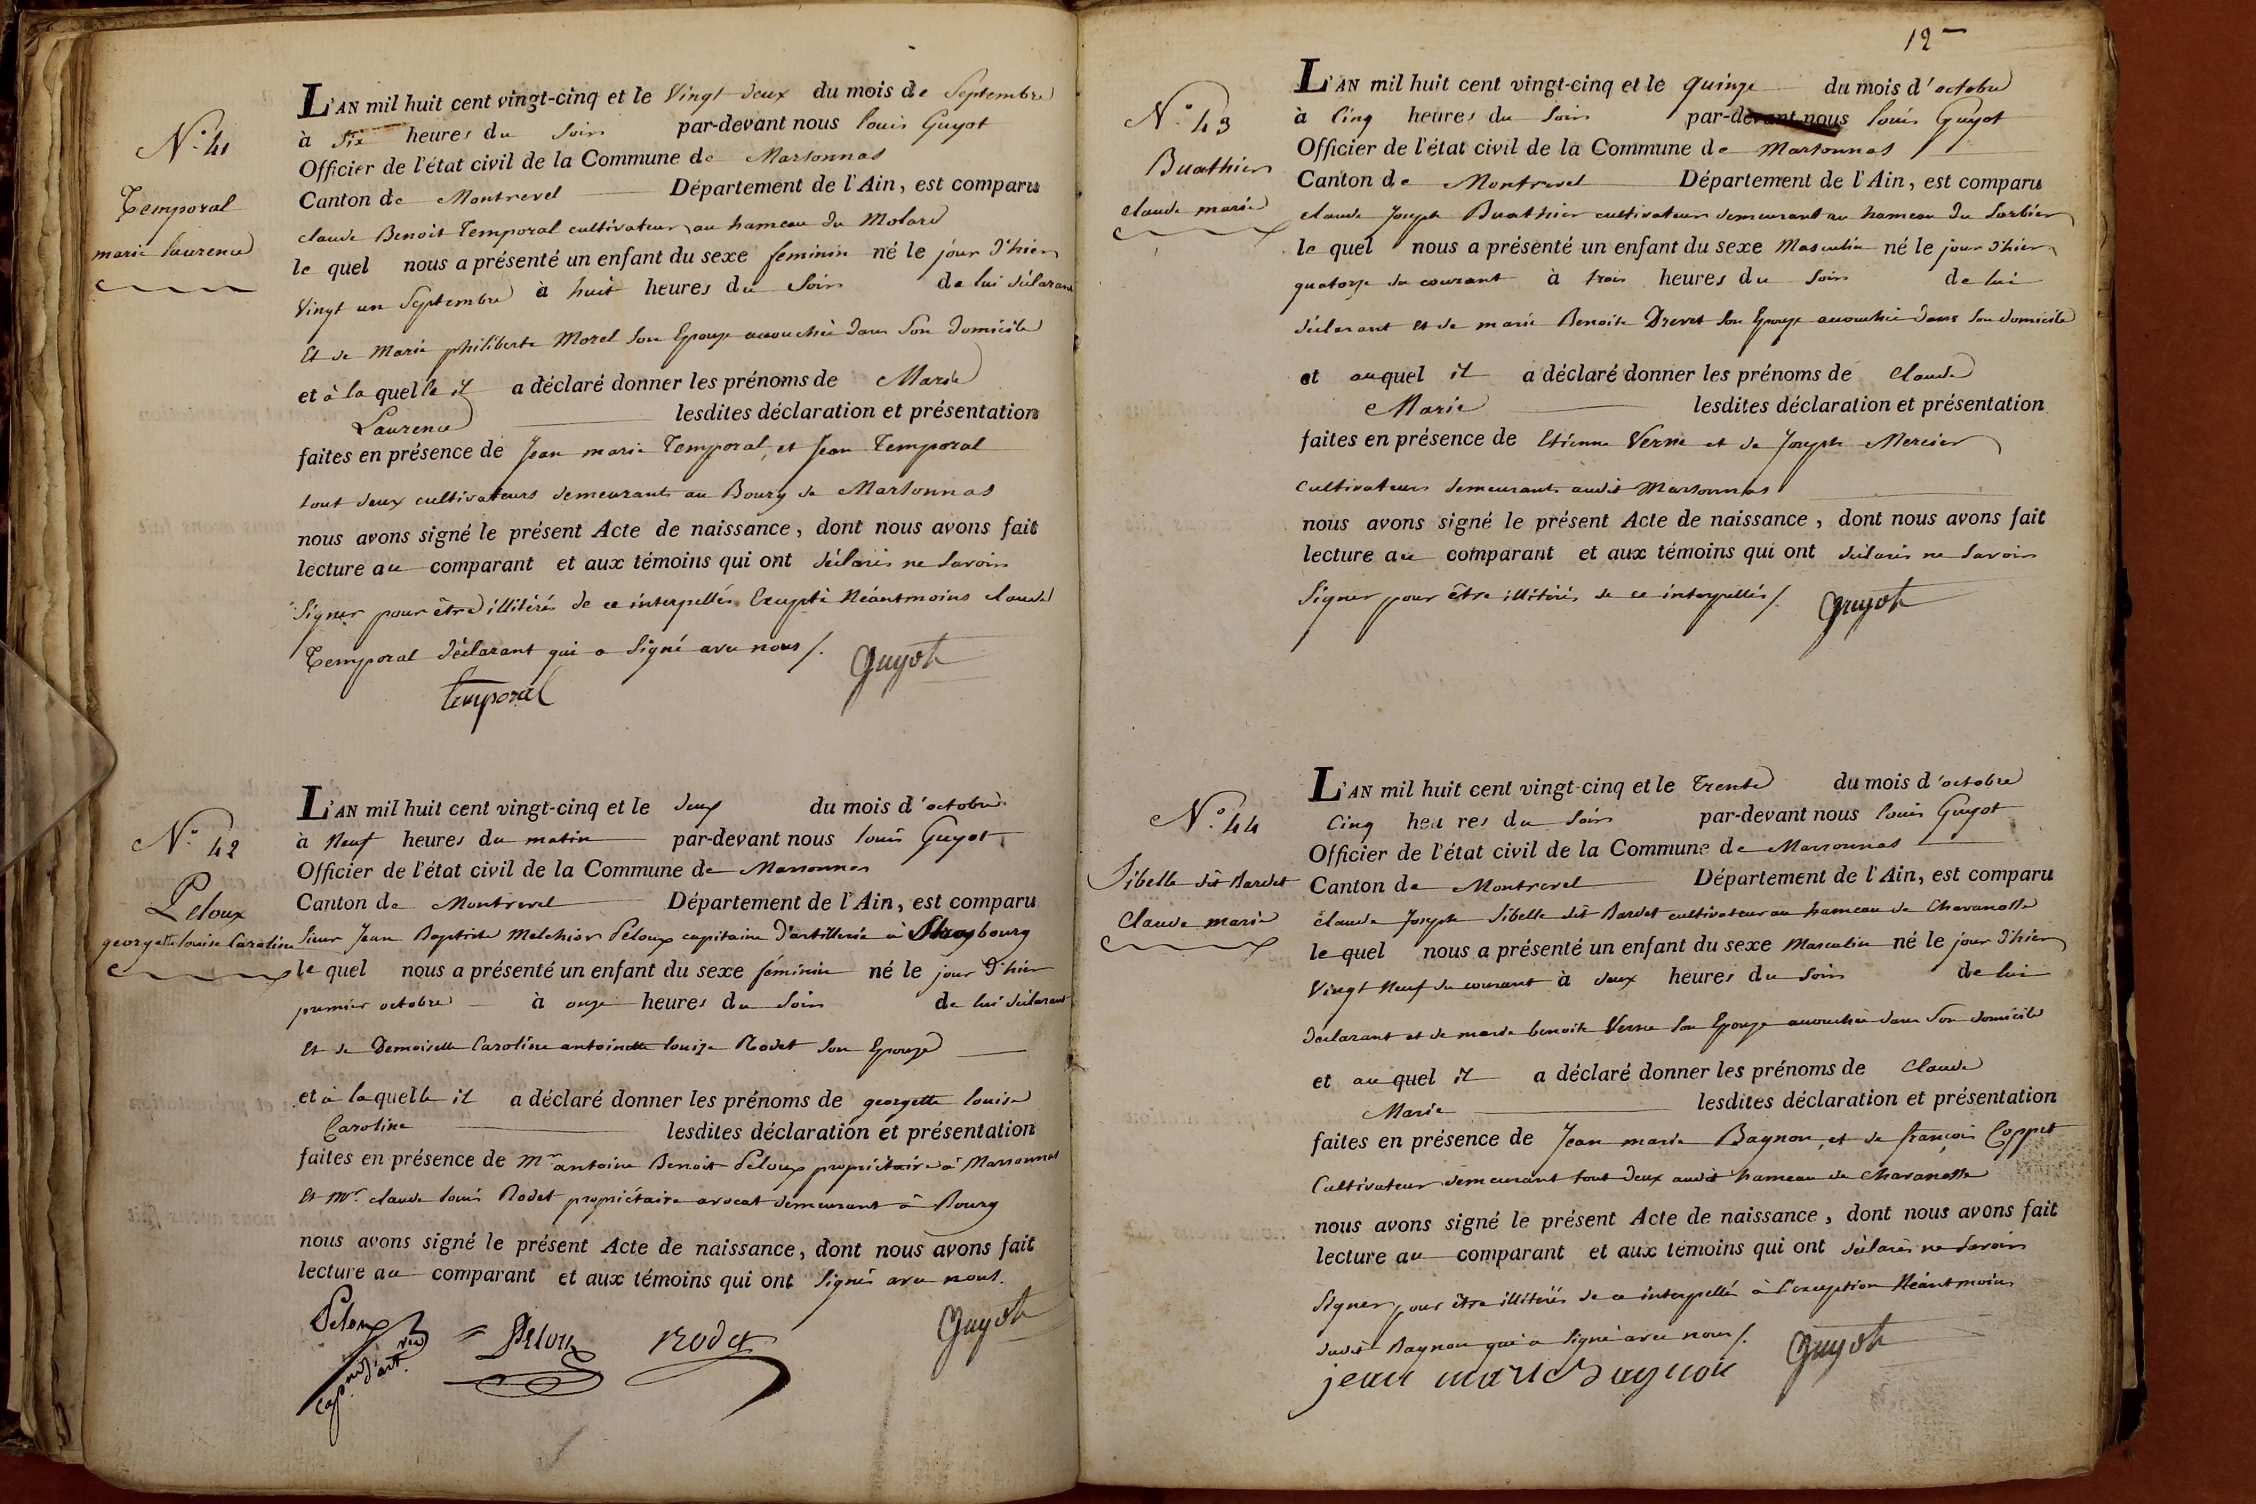 N.° 41
Temporal
marie laurence
L'AN mil huit cent vingt-cinq et le Vingt deux du mois de Septembre
à Six heures du Soir par-devant nous louis Guyot
Officier de l'état civil de la Commune de Marsonnas
Canton de Montrevel Département de l'Ain, est comparu
claude Benoit Temporal cultivateur au hameau du Molard
le quel nous a présenté un enfant du sexe feminin né le jour d'hier
Vingt un Septembre à huit heures du Soir de lui déclarant
Et de Marie philiberte Morel Son Epouze accouchée dans Son domicile
et à la quelle il a déclaré donner les prénoms de Marie
Laurence lesdites déclaration et présentation
faites en présence de Jean marie Temporal, et Jean Temporal
tout deux cultivateurs demeurants au Bourg de Marsonnas
nous avons signé le présent Acte de naissance, dont nous avons fait
lecture au comparant et aux témoins qui ont déclarés ne Savoir
Signer pour être illitérés de ce interpellés Excepté Néantmoins claude
Temporal déclarant qui a Signé avec nous /.
Guyot
temporal
N.° 42
Peloux
georgette louise Caroline
L'AN mil huit cent vingt-cinq et le deux du mois d'octobre
à Neuf heures du matin par-devant nous louis Guyot
Officier de l'état civil de la Commune de Marsonnas
Canton de Montrevel Département de l'Ain, est comparu
Sieur Jean Baptiste Melchior Peloux capitaine d'artillerie à Strasbourg
le quel nous a présenté un enfant du sexe féminin né le jour d'hier
premier octobre à onze heures du Soir de lui déclarant
Et de Demoiselle Caroline antoinette louize Rodet Son Epouze
et à la quelle il a déclaré donner les prénoms de georgette louise
Caroline lesdites déclaration et présentation
faites en présence de Mr antoine Benoit Peloux propriétaire à Marsonnas
Et Mr. claude louis Rodet propriétaire avocat demeurant à Bourg
nous avons signé le présent Acte de naissance, dont nous avons fait
lecture au comparant et aux témoins qui ont Signés avec nous.
Peloux
Peloux
Rodet
Guyot
12
N.° 43
Buathier
claude marie
L'AN mil huit cent vingt-cinq et le quinze du mois d'octobre
à Cinq heures du Soir par-devant nous louis Guyot
Officier de l'état civil de la Commune de Marsonnas
Canton de Montrevel Département de l'Ain, est comparu
claude Joseph Buathier cultivateur demeurant au hameau du Sorbier
le quel nous a présenté un enfant du sexe Masculin né le jour d'hier
quatorze du courant à trois heures du Soir de lui
déclarant et de marie Benoite Drevet Son Epouze accouchée dans Son domicile
et auquel il a déclaré donner les prénoms de Claude
Marie lesdites déclaration et présentation
faites en présence de Etienne Verne et de Joseph Mercier
cultivateurs demeurants audit Marsonnas
nous avons signé le présent Acte de naissance, dont nous avons fait
lecture au comparant et aux témoins qui ont déclarés ne Savoir
Signer pour être illitérés de ce interpellés /.
Guyot
N.° 44
Sibelle dit Bardet
Claude marie
L'AN mil huit cent vingt-cinq et le Trente du mois d'octobre
Cinq heures du Soir par-devant nous louis Guyot
Officier de l'état civil de la Commune de Marsonnas
Canton de Montrevel Département de l'Ain, est comparu
claude Joseph Sibelle dit Bardet cultivateur au hameau de Chavanosse
le quel nous a présenté un enfant du sexe Masculin né le jour d'hier
Vingt Neuf du courant à deux heures du Soir de lui
déclarant et de marie benoite Verne Son Epouze accouchée dans Son domicile
et auquel il a déclaré donner les prénoms de Claude
Marie lesdites déclaration et présentation
faites en présence de Jean marie Bagnon, et de françois Coppet
Cultivateur demeurant tout deux audit hameau de Chavanosse
nous avons signé le présent Acte de naissance, dont nous avons fait
lecture au comparant et aux témoins qui ont déclarés ne Savoir
Signer pour être illitérés de ce interpellé à l'exception Néantmoins
dudit Bagnon qui a Signé avec nous /.
Guyot
jean marie Bagnon